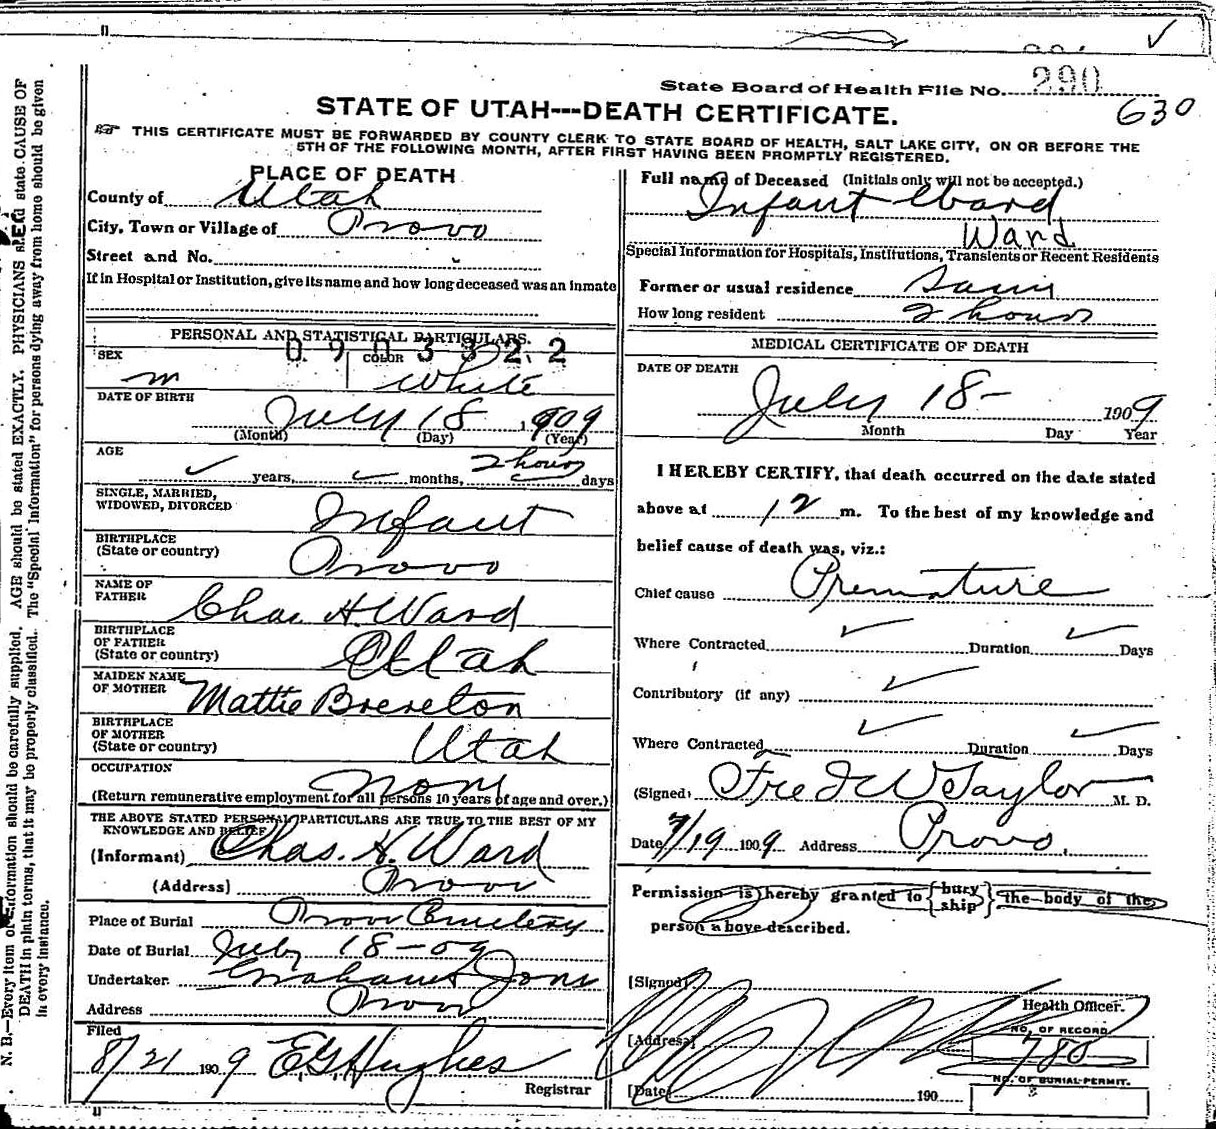 State Board of Health File No. 290
630
STATE OF UTAH---DEATH CERTIFICATE.
THIS CERTIFICATE MUST BE FORWARDED BY COUNTY CLERK TO STATE BOARD OF HEALTH, SALT LAKE CITY, ON OR BEFORE THE
5TH OF THE FOLLOWING MONTH, AFTER FIRST HAVING BEEN PROMPTLY REGISTERED.
PLACE OF DEATH
County of Utah
City, Town or Village of Provo
Street and No.
If in Hospital or Institution, give its name and how long deceased was an inmate
PERSONAL AND STATISTICAL PARTICULARS.
0903322
SEX m
COLOR White
DATE OF BIRTH
July 18 1909
(Month) (Day) (Year)
AGE
years, months, 2 hours days
SINGLE, MARRIED,
WIDOWED, DIVORCED Infant
BIRTHPLACE
(State or country) Provo
NAME OF
FATHER Chas. H. Ward
BIRTHPLACE
OF FATHER
(State or country) Utah
MAIDEN NAME
OF MOTHER Mattie Brereton
BIRTHPLACE
OF MOTHER
(State or country) Utah
OCCUPATION
(Return remunerative employment for all persons 10 years of age and over.)
THE ABOVE STATED PERSONAL PARTICULARS ARE TRUE TO THE BEST OF MY
KNOWLEDGE AND BELIEF
(Informant) Chas. H. Ward
(Address) Provo
Place of Burial Provo Cemetery
Date of Burial July 18-09
Undertaker
Address Provo
Filed
8/21 1909 E G Hughes
Registrar
Full name of Deceased (Initials only will not be accepted.)
Infant Ward
Ward
Special Information for Hospitals, Institutions, Transients or Recent Residents
Former or usual residence Same
How long resident 2 hours
MEDICAL CERTIFICATE OF DEATH
DATE OF DEATH
July 18- 1909
Month Day Year
I HEREBY CERTIFY, that death occurred on the date stated
above at 12 m. To the best of my knowledge and
belief cause of death was, viz.:
Chief cause Premature
Where Contracted Duration Days
Contributory (if any)
Where Contracted Duration Days
(Signed) Fred W Taylor M. D.
Date 7/19 1909 Address Provo.
Permission is hereby granted to {bury ship} the body of the
person above described.
[Signed]
Health Officer.
[Address]
[Date] 190
NO. OF RECORD
780
NO. OF BURIAL PERMIT.
N. B.—Every item of information should be carefully supplied. AGE should be stated EXACTLY. PHYSICIANS should state CAUSE OF
DEATH in plain terms, that it may be properly classified. The "Special Information" for persons dying away from home should be given
in every instance.